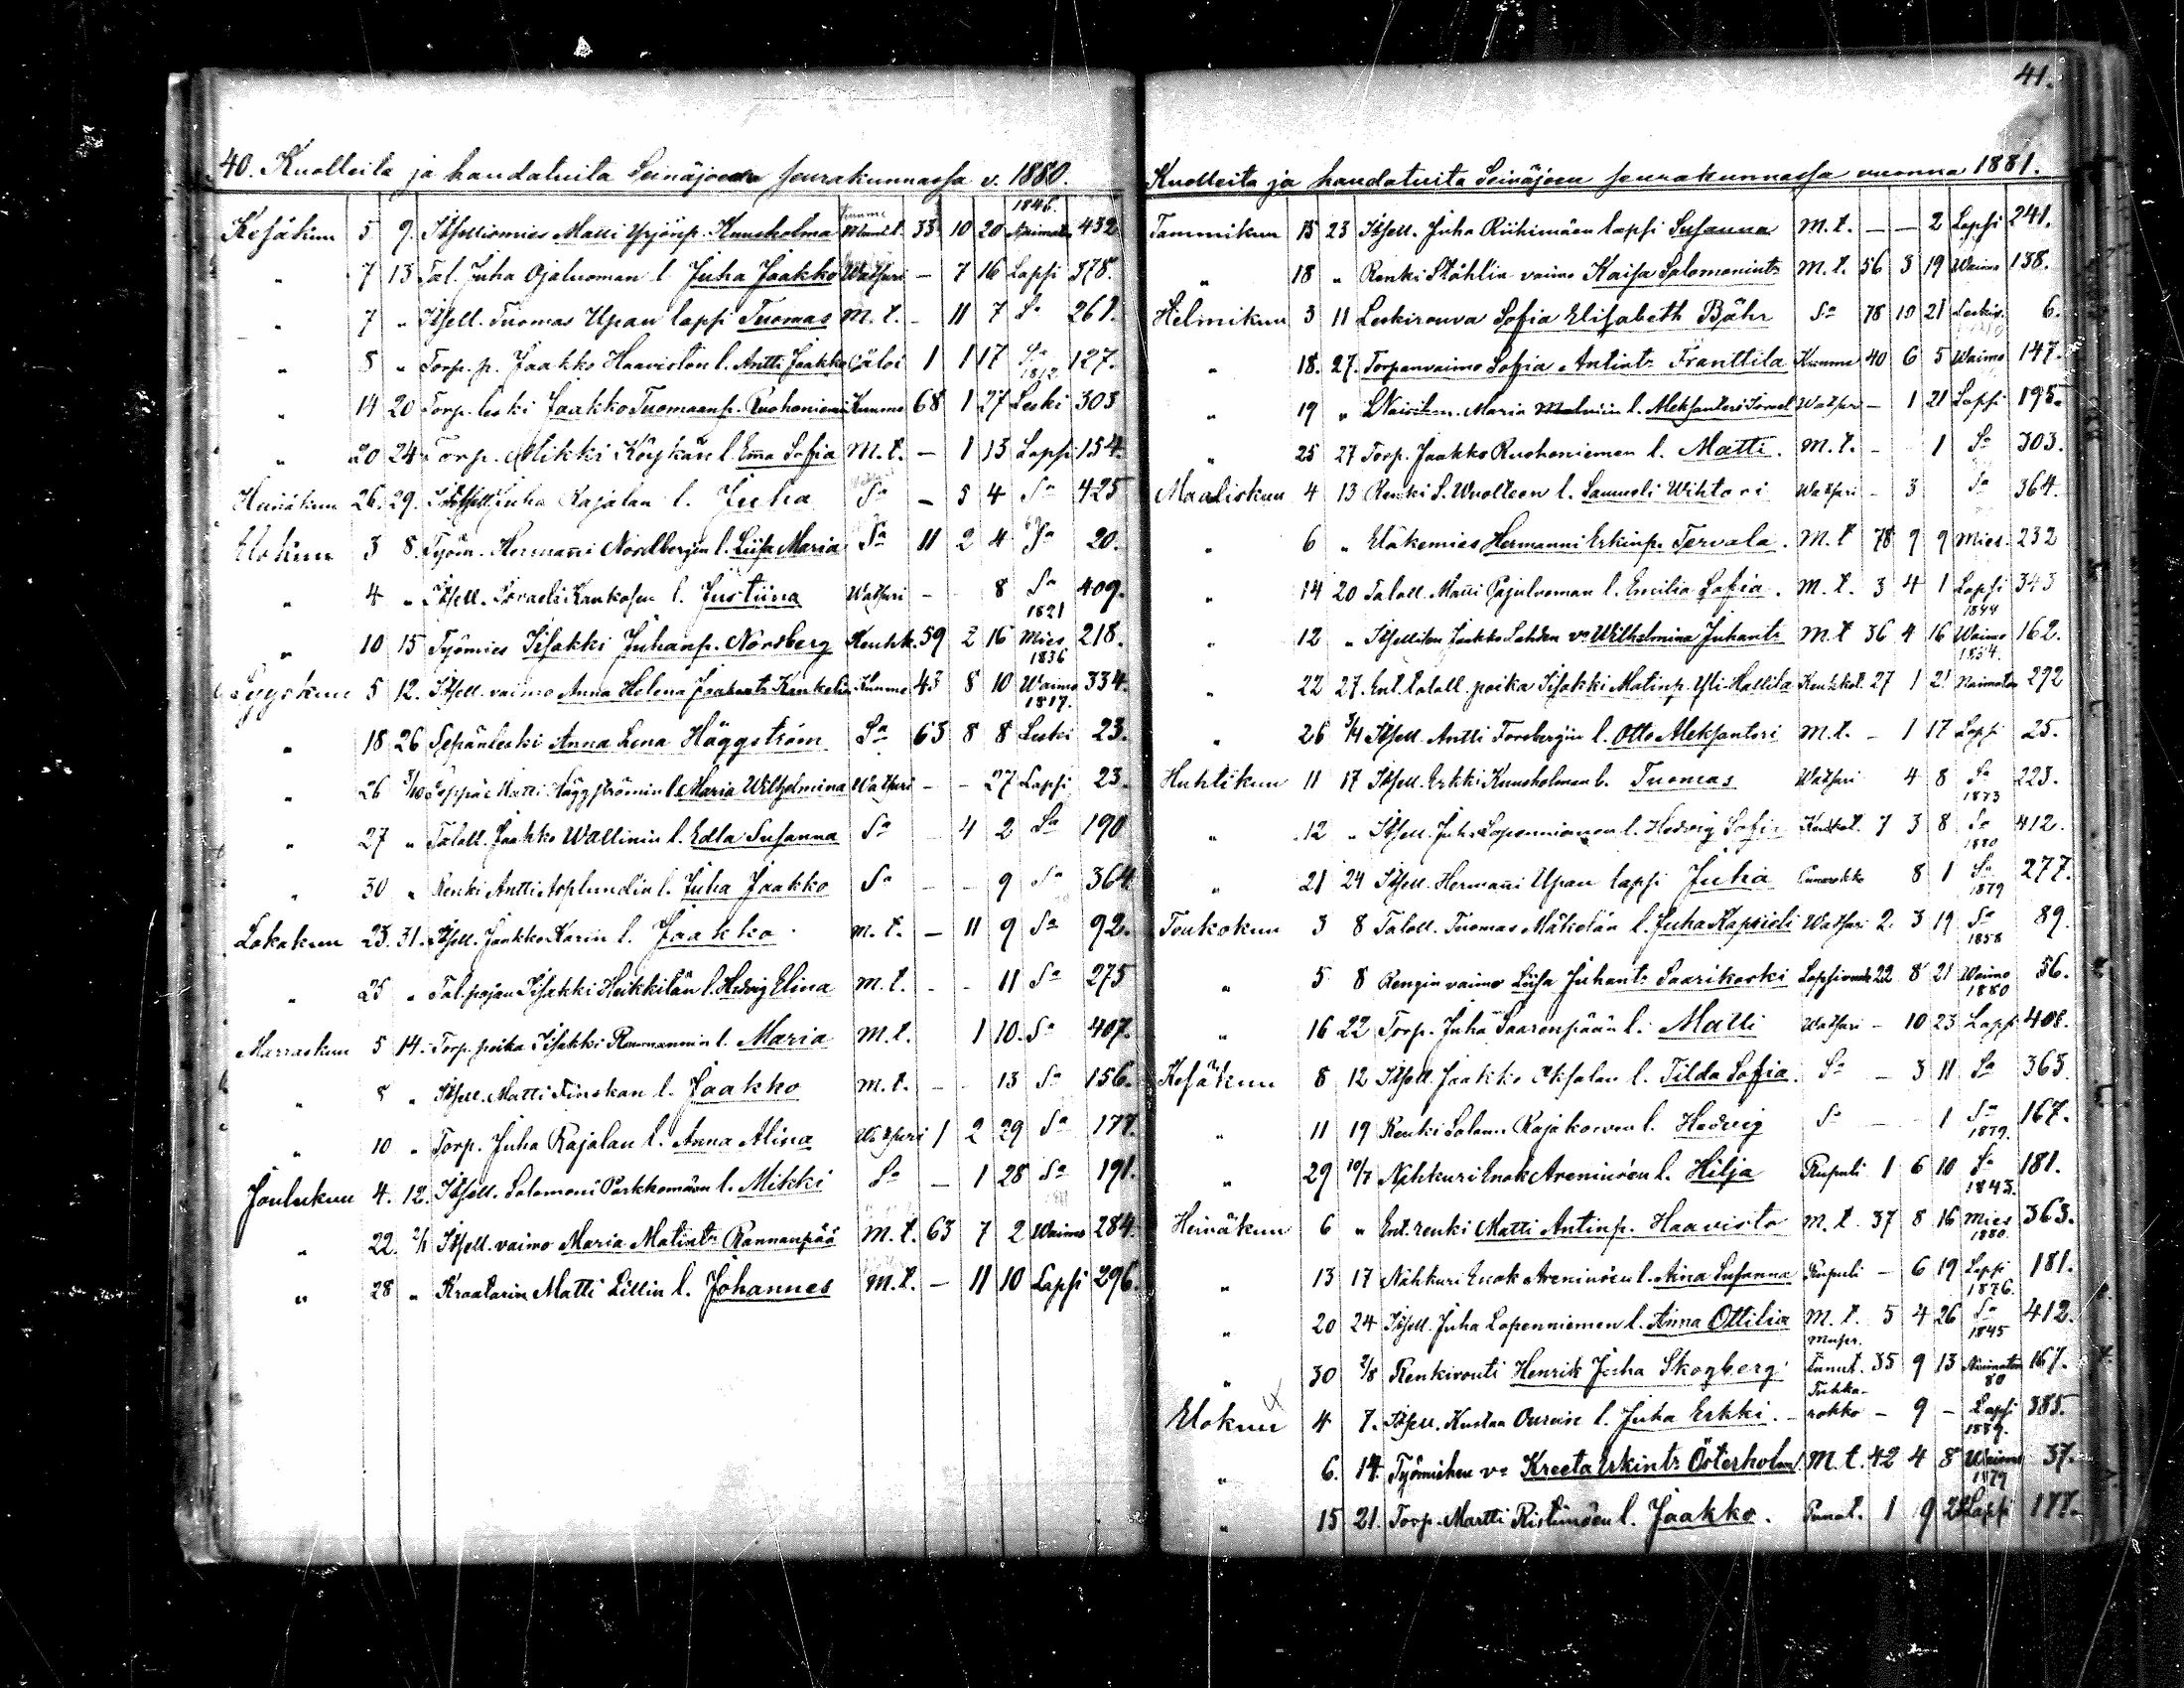 40. Kuolleita ja haudatuita Seinäjoen seurakunnassa v. 1880.
1846.
Kesäkuu 5 9. Itsellismies Matti Yrjönp. Kuusholma 33 10 20 Naimaton 432.
" 7 13 Tal. Juha Ojaluoman l. Juha Jaakko Watsuri — 7 16 Lapsi 378.
" 7 " Itsell. Tuomas Upan lapsi Tuomas M. t. — 11 7 Sa 261.
" 8 " Torp. p. Jaakko Haaviston l. Antti Jaakko 1 1 17 Sa 127.
1812
" 14 20 Torp. leski Jaakko Tuomaanp. Ruohoniemi Kuume 68 1 27 Leski 303
" 20 24 Torp. Mikki Köykän l. Ema Sofia M. t. — 1 13 Lapsi 154.
Heinäkuu 26. 29. Itsell. Juha Rajalan l. Juha Sa — 5 4 Sa 425
Elokuu 3 8. Työm. Hermanni Nordbergin l. Liisa Maria Sa 11 2 4 Sa 20.
" 4 " Itsell. Israeli Kankosen l. Justiina Watsuri — - 8 Sa 409.
1821
" 10 15 Työmies Iisakki Juhanp. Nordberg Keuhk. 59 2 16 Mies 218.
1836
Syyskuu 5 12. Itsell. vaimo Anna Helena Kuume 43 8 10 Waimo 334.
1817.
" 18 26 Sepänleski Anna Lena Häggström Sa 63 8 8 Leski 23.
" 26 3/10 Seppä Matti Häggströmin l. Maria Wilhelmina Watsuri — - 27 Lapsi 23.
" 27 " Taloll. Jaakko Wallinin l. Edla Susanna Sa - 4 2 Sa 190
" 30 " Renki Antti Asplundin l. Juha Jaakko Sa - - 9 Sa 364
Lokakuu 23. 31. Itsell. Jaakko Karin l. Jaakko M. t. — 11 9 Sa 92.
" 25 " Tal. pojan Iisakki Heikkilän l. Hedvig Elina M. t. - - 11 Sa 275
Marraskuu 5 14. Torp. poika Iisakki Rammanin l. Maria M. t. 1 10. Sa 407.
" 8 " Itsell. Matti Finskan l. Jaakko M. t. — - 13 Sa 156.
" 10 " Torp. Juha Rajalan l. Anna Alina Watsuri 1 2 29 Sa 177.
Joulukuu 4. 12. Itsell. Salomoni Parkkomäen l. Mikki Sa — 1 28 Sa 191.
" 22. 2/1 Itsell. vaimo Maria Matints Rannanpää M. t. 63 7 2 Waimo 284.
" 28 " Kraatarin Matti Lillin l. Johannes M. t. — 11 10 Lapsi 296.
41.
Kuolleita ja haudatuita Seinäjoen seurakunnassa vuonna 1881.
Tammikuu 15 23 Itsell. Juha Riihimäen lapsi Susanna M. t. — — 2 Lapsi 241.
" 18 " Renki Ståhlin vaimo Kaisa Salomonints M. t. 56 3 19 Waimo 138.
Helmikuu 3 11 Leskirouva Sofia Elisabeth Bähr Sa 78 10 21 Leskir. 6.
" 18. 27. Torpanvaimo Sofia Antints Franttila Kuume 40 6 5 Waimo 147.
" 19 " Maria l. Watsuri — 1 21 Lapsi 195.
" 25 27 Torp. Jaakko Ruohoniemen l. Matti. M. t. - - 1 Sa 303.
Maaliskuu 4 13 Renki S. Wuolteen l. Samueli Wihtori Watsuri - 3 Sa 364.
" 6 " Eläkemies Hermanni Erkinp. Tervala. M. t 78 9 9 Mies. 232
" 14 20 Taloll. Matti Pajuluoman l. Emilia Sofia. M. t. 3 4 1 Lapsi 343
1844
" 12 " Itsellisen Jaakko Lahden vo Wilhelmina Juhants M. t 36 4 16 Waimo 162.
1854.
" 22 27. Ent. taloll. poika Iisakki Matinp. Yli-Hallila Keuhkot. 27 1 21 Naimaton 292
" 26 3/4 Itsell. Antti Forsbergin l. Otto Aleksanteri M. t. - 1 17 Lapsi 25.
Huhtikuu 11 17 Itsell. Erkki Kuusholman l. Tuomas Watsuri 4 8 Sa 223.
1873
" 12 " Itsell. Juha Lapenniemen l. Hedvig Sofia Keuhkot. 7 3 8 Sa 412.
1880
" 21 24 Itsell. Hermanni Upan lapsi Juha 8 1 Sa 277.
1879
Toukokuu 3 8 Taloll. Tuomas Mäkelän l. Juha Kaprieli Watsuri 2. 3 19 Sa 89.
1858
" 5 8 Rengin vaimo Liisa Juhants Saarikoski Lapsivuode 22 8 21 Waimo 56.
1880
" 16 22 Torp. Juha Saarenpään l. Matti Watsuri — 10 23 Lapsi 408.
Kesäkuu 8 12 Itsell. Jaakko Oksalan l. Tilda Sofia. Sa — 3 11 Sa 363.
" 11 19 Renki Salom. Rajakorven l. Hedvig Sa — - 1 Sa 167.
1879.
" 29 10/7 Nahkuri Enok Areniusen l. Hilja Rupuli 1 6 10 Sa 181.
1843.
Heinäkuu 6 " Ent. renki Matti Antinp. Haavisto M. t. 37 8 16 Mies 363.
1880.
" 13 17 Nahkuri Enok Areniusen l. Aina Susanna Rupuli — 6 19 Lapsi 181.
1876.
" 20 24 Itsell. Juha Lapenniemen l. Anna Ottilia M. t. 5 4 26 Sa 412.
1845
" 30 2/8 Renkivouti Henrik Juha Skogberg 35 9 13 Naimaton 167.
80
Elokuu 4 7. Itsell. Kustaa l. Juha Erkki. Tuhkarokko — 9 — Lapsi 385.
1839.
" 6. 14. Työmiehen vo Kreeta Erkints Österholm M. t. 42 4 8 Waimo 37.
1879
" 15 21. Torp. Martti Ristimäen l. Jaakko. Punat. 1 9 Lapsi 177.